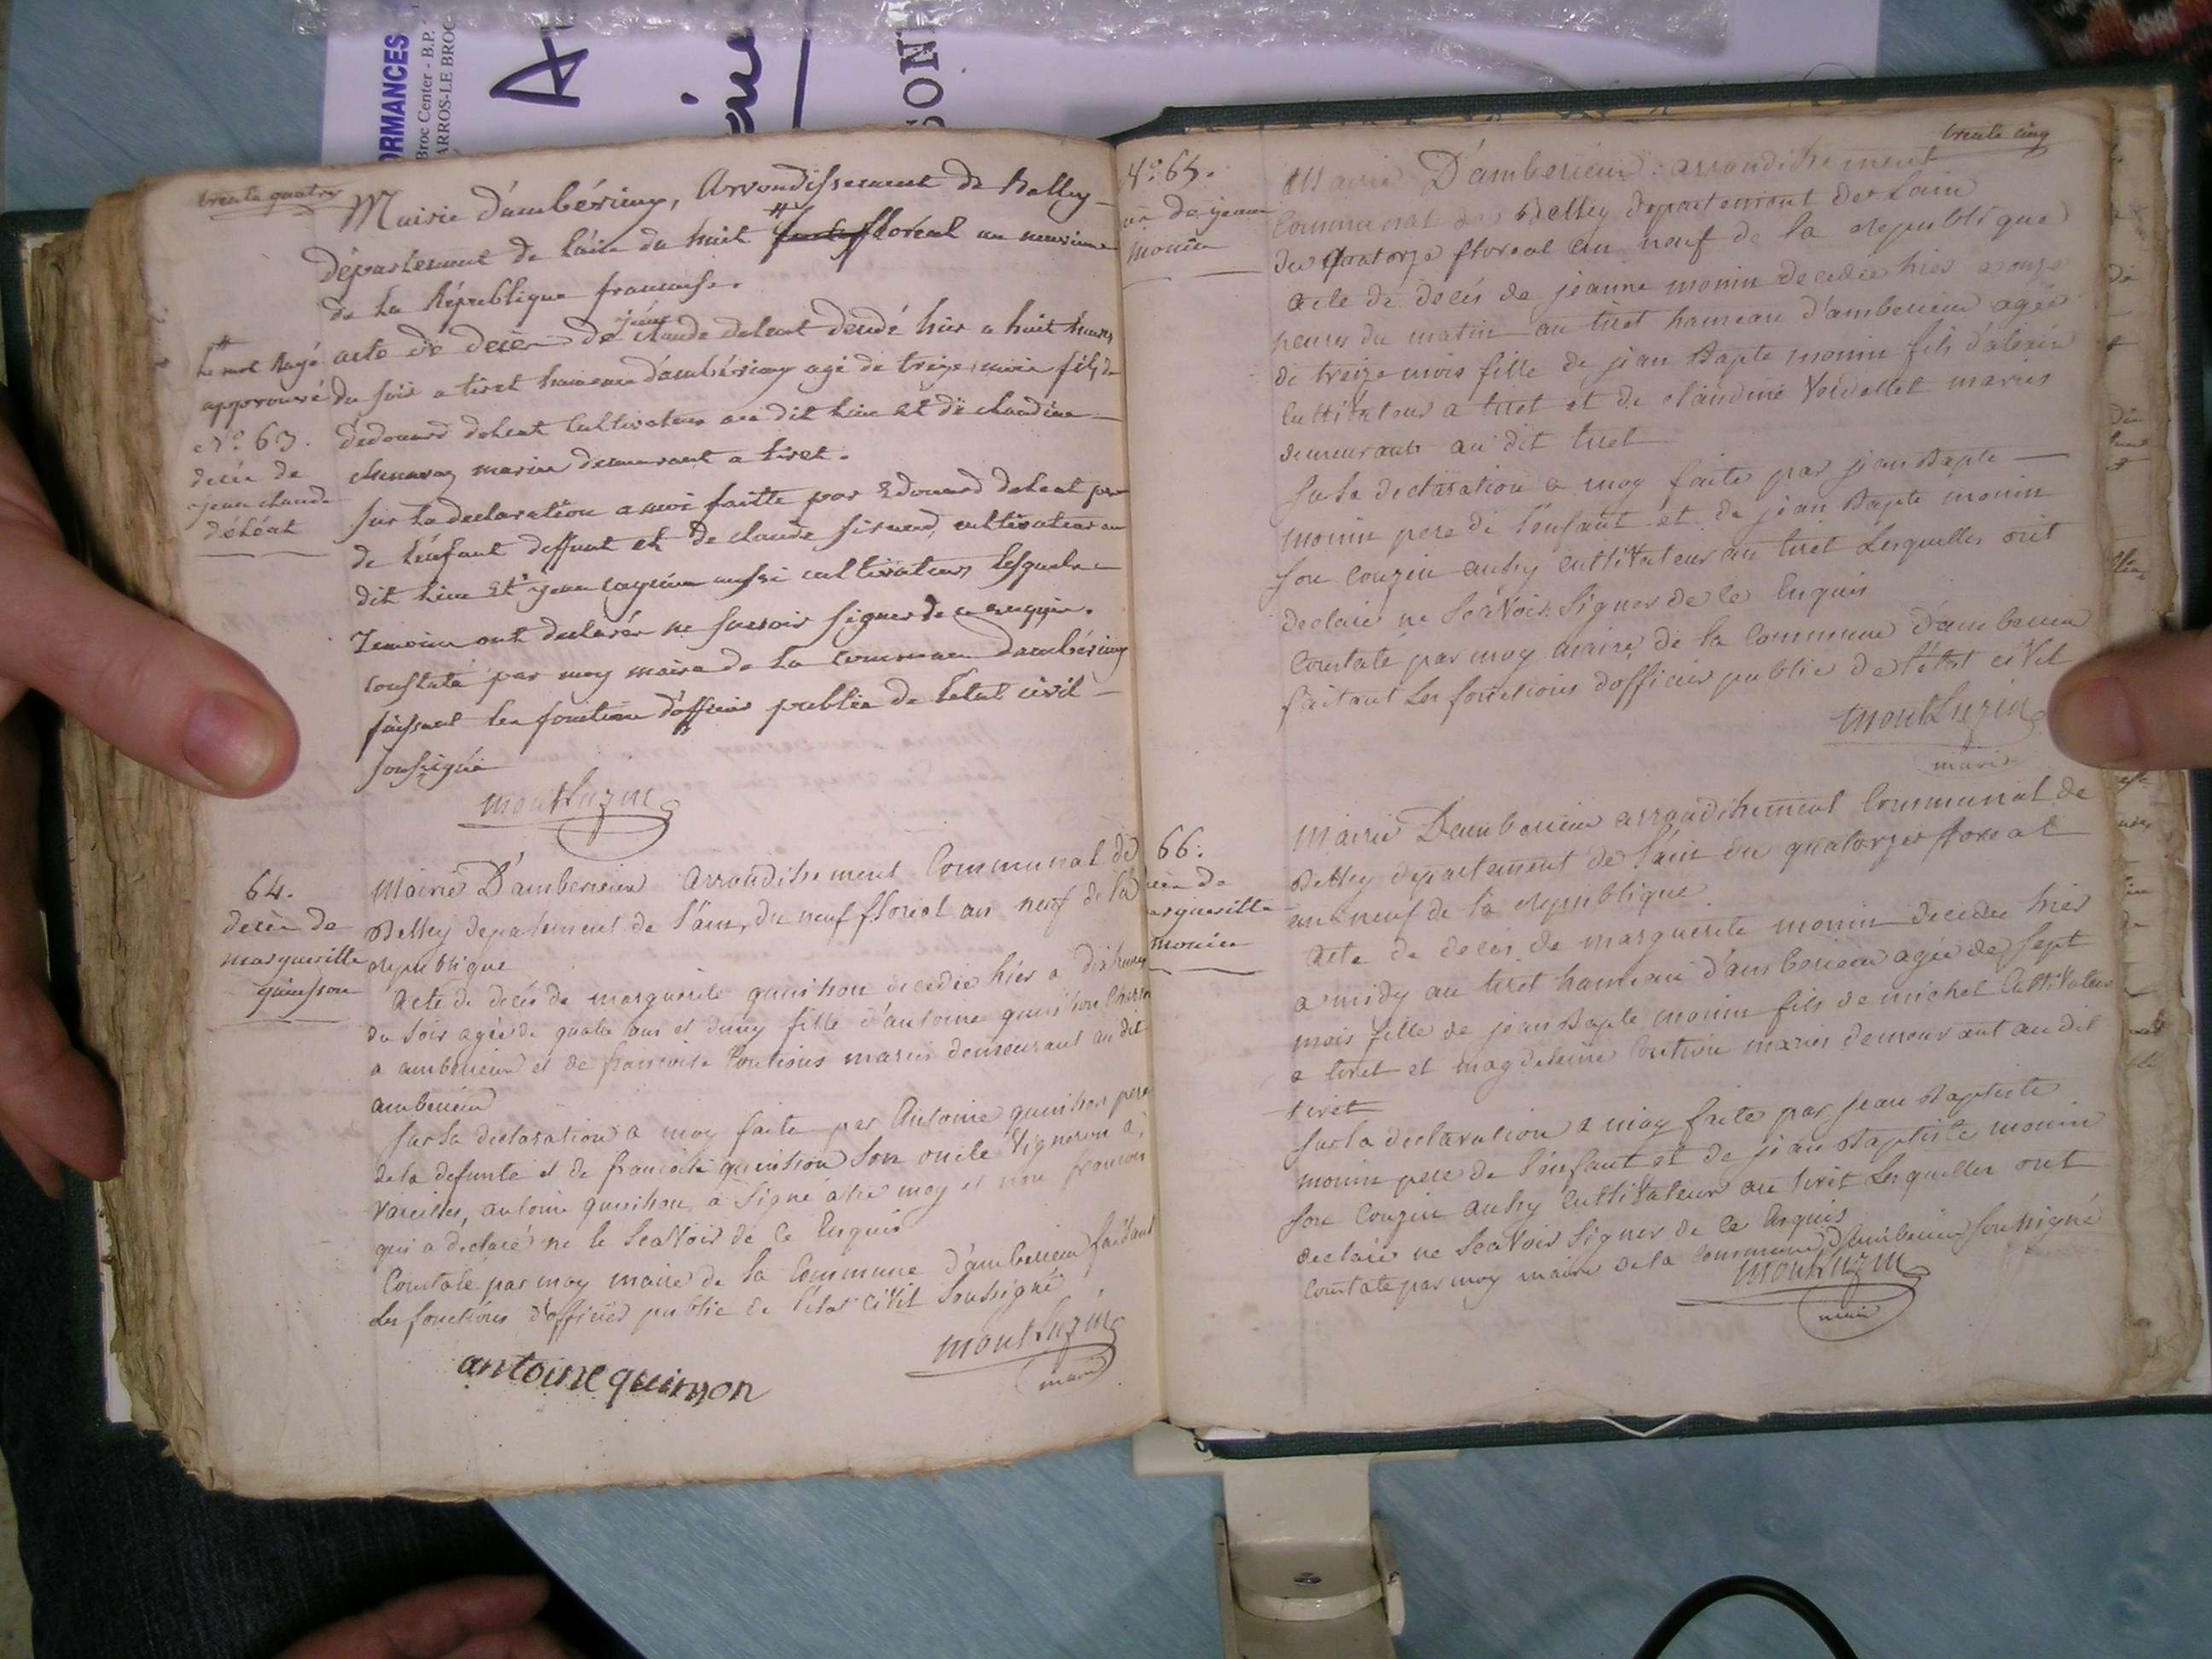 ORMANCES
Broc Center - B.P.
ARROS-LE BROC
trente quatre
Mairie d'ambérieux, Arrondissement de Belley
Département de l'ain du huit floréal an neuvieme
de la République francaise.
le mot Rayé
approuvé
N.º 63.
décès de
jean claude
déléat
acte de décès de jean claude deleat décédé hier a huit heures
du soir a tiret hameau d'ambérieux agé de treize mois fils
dedouard deleat Cultivateur au dit lieu et de claudine
mariés demeurant a tiret.
sur la declaration a moi faitte par Edouard deleat pere
de l'enfant deffunt et de claude cultivateur au
dit lieu et jean aussi cultivateur lesquels
Temoins ont declarés ne scavoir signer de ce enquis.
Constaté par moy maire de la commune d'ambérieux
faisant les fonctions d'officier public de l'etat civil
soussigné
montluzin
64.
decès de
margueritte
quinson
Mairie D'amberieux Arrondissement Communal de
Belley departement de l'ain, du neuf floreal an neuf de la
republique
Acte de decés de marguerite quinson decedée hier a dix heures
du soir agée de quatre ans et demy fille d'antoine quinson
a amberieux et de francoise mariés demeurant au dit
amberieux
sur la declaration a moy faite par Antoine quinson pere
de la defunte et de francois quinson son oncle Vigneron a
Vareilles, antoine quinson a Signé avec moy et non francois
qui a declaré ne le Scavoir de ce Enquis
Constaté par moy maire de la Commune d'amberieux faisant
les fonctions d'officier public de l'état civil soussigné
montluzin
maire
antoine quinson
trente cinq
N.º 65.
de jeanne
monin
Mairie D'amberieux arrondissement
Communal de Belley departement de Lain
du quatorze floreal an neuf de la republique
Acte de decés de jeanne monin decedée hier a onze
heures du matin au tiret hameau d'amberieux agée
de treize mois fille de jean Bapte monin fils d'alexis
Cultivateur a tiret et de claudine Verdellet mariés
demeurants au dit tiret
sur la declaration a moy faite par jean Bapte
monin pere de l'enfant et de jean Bapte monin
son couzin aussy cultivateur au tiret Lesquelles ont
declaré ne scavoir signer de ce Enquis
Constaté par moy maire de la Commune d'amberieux
faisant les fonctions d'officier public de l'état civil
montluzin
maire
66.
de
margueritte
monin
Mairie D'amberieux arrondissement Communal de
Belley departement de l'ain du quatorze floreal
an neuf de la republique
Acte de decés de marguerite monin decedée hier
a midy au tiret hameau d'amberieux agée de sept
mois fille de jean Bapte monin fils de michel Cultivateur
a tiret et magdeleine mariés demeurant au dit
tiret
sur la declaration a moy faite par jean Baptiste
monin pere de l'enfant et de jean Baptiste monin
son couzin aussy cultivateur au tiret Lesquelles ont
declaré ne scavoir signer de ce Enquis
Constaté par moy maire de la Commune d'amberieux soussigné
montluzin
maire